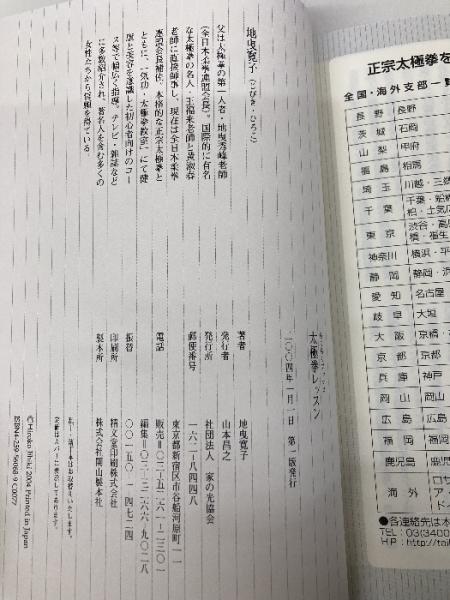 地曳寛子（じびき・ひろこ）
父は太極拳の第一人者・地曳秀峰老師
（全日本柔拳連盟会長）。国際的に有名
な太極拳の名人・王福来老師と黄淑春
老師に直接師事し、現在は全日本柔拳
連盟会長補佐。本格的な正宗太極拳と
ともに、「気功・太極拳教室」にて健
康と美容を意識した初心者向けのコー
ス等で幅広く指導。テレビ・雑誌など
に多数紹介され、著名人を含む多くの
女性たちから信頼を得ている。
太極拳レッスン
二〇〇四年一月一日　第一版発行
著者　地曳寛子
発行者　山本昌之
発行所　社団法人　家の光協会
郵便番号　一六二－八四四八
東京都新宿区市谷船河原町一一
電話　販売＝〇三－三二六六－
編集＝〇三－三二六六－九〇二八
振替　〇〇一五〇－一－四七二四
印刷所　精文堂印刷株式会社
製本所　株式会社関山製本社
乱丁・落丁本はお取替えいたします。
定価はカバーに表示してあります。
©Hiroko Jibiki 2004 Printed in Japan
正宗太極拳を
全国・海外支部一覧
長野　長野
茨城　石岡
山梨　甲府
福島　相馬
埼玉　川越・三郷
千葉　千葉・船橋
柏・土気
東京　渋谷・高
橋・福生
神奈川　横浜・平
静岡　静岡・浜
愛知　名古屋
岐阜　大垣
大阪　京橋・
京都　京都
兵庫　神戸
岡山　岡山
広島　広島
福岡　福岡
鹿児島　鹿児
海外
●各連絡先は本
TEL：03(3400
HP：http://tai